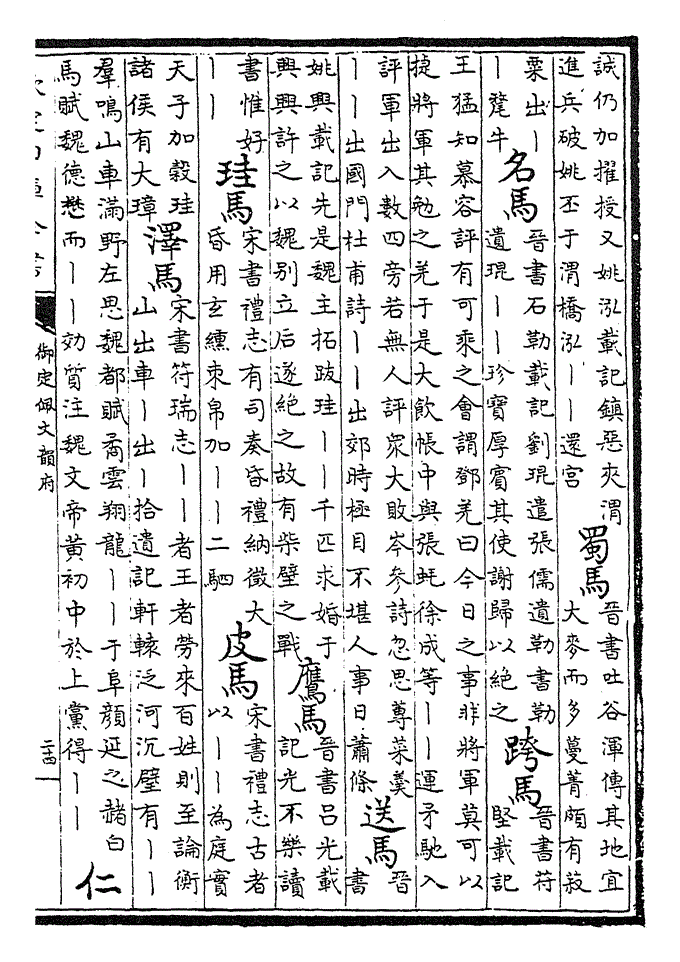 誠仍加擢授又姚泓載記鎮惡夾渭
進兵破姚丕于渭橋泓丨丨還宮
蜀馬
晉書吐谷渾傳其地宜
大麥而多蔓菁頗有菽
粟出丨
丨犛牛
名馬
晉書石勒載記劉琨遣張儒遺勒書勒
遺琨丨丨珍寶厚賓其使謝歸以絶之
跨馬
晉書苻
堅載記
王猛知慕容評有可乘之會謂鄧羌曰今日之事非將軍莫可以
捷將軍其勉之羌于是大飲帳中與張蚝徐成等丨丨運矛馳入
評軍出入數四旁若無人評衆大敗岑參詩忽思蓴菜羹
丨丨出國門杜甫詩丨丨出郊時極目不堪人事日蕭條
送馬
晉
書
姚興載記先是魏主拓跋珪丨丨千匹求婚于
興興許之以魏别立后遂絶之故有柴壁之戰
鷹馬
晉書吕光載
記光不樂讀
書惟好
丨丨
珪馬
宋書禮志有司奏昏禮納徵大
昏用玄纁束帛加丨丨二駟
皮馬
宋書禮志古者
以丨丨為庭實
天子加穀珪
諸侯有大璋
澤馬
宋書符瑞志丨丨者王者勞來百姓則至論衡
山出車丨出丨拾遺記軒轅泛河沉璧有丨丨
羣鳴山車滿野左思魏都賦矞雲翔龍丨丨于阜顔延之赭白
馬賦魏德楙而丨丨効質注魏文帝黄初中於上黨得丨丨
仁
御定佩文韻府
二十四